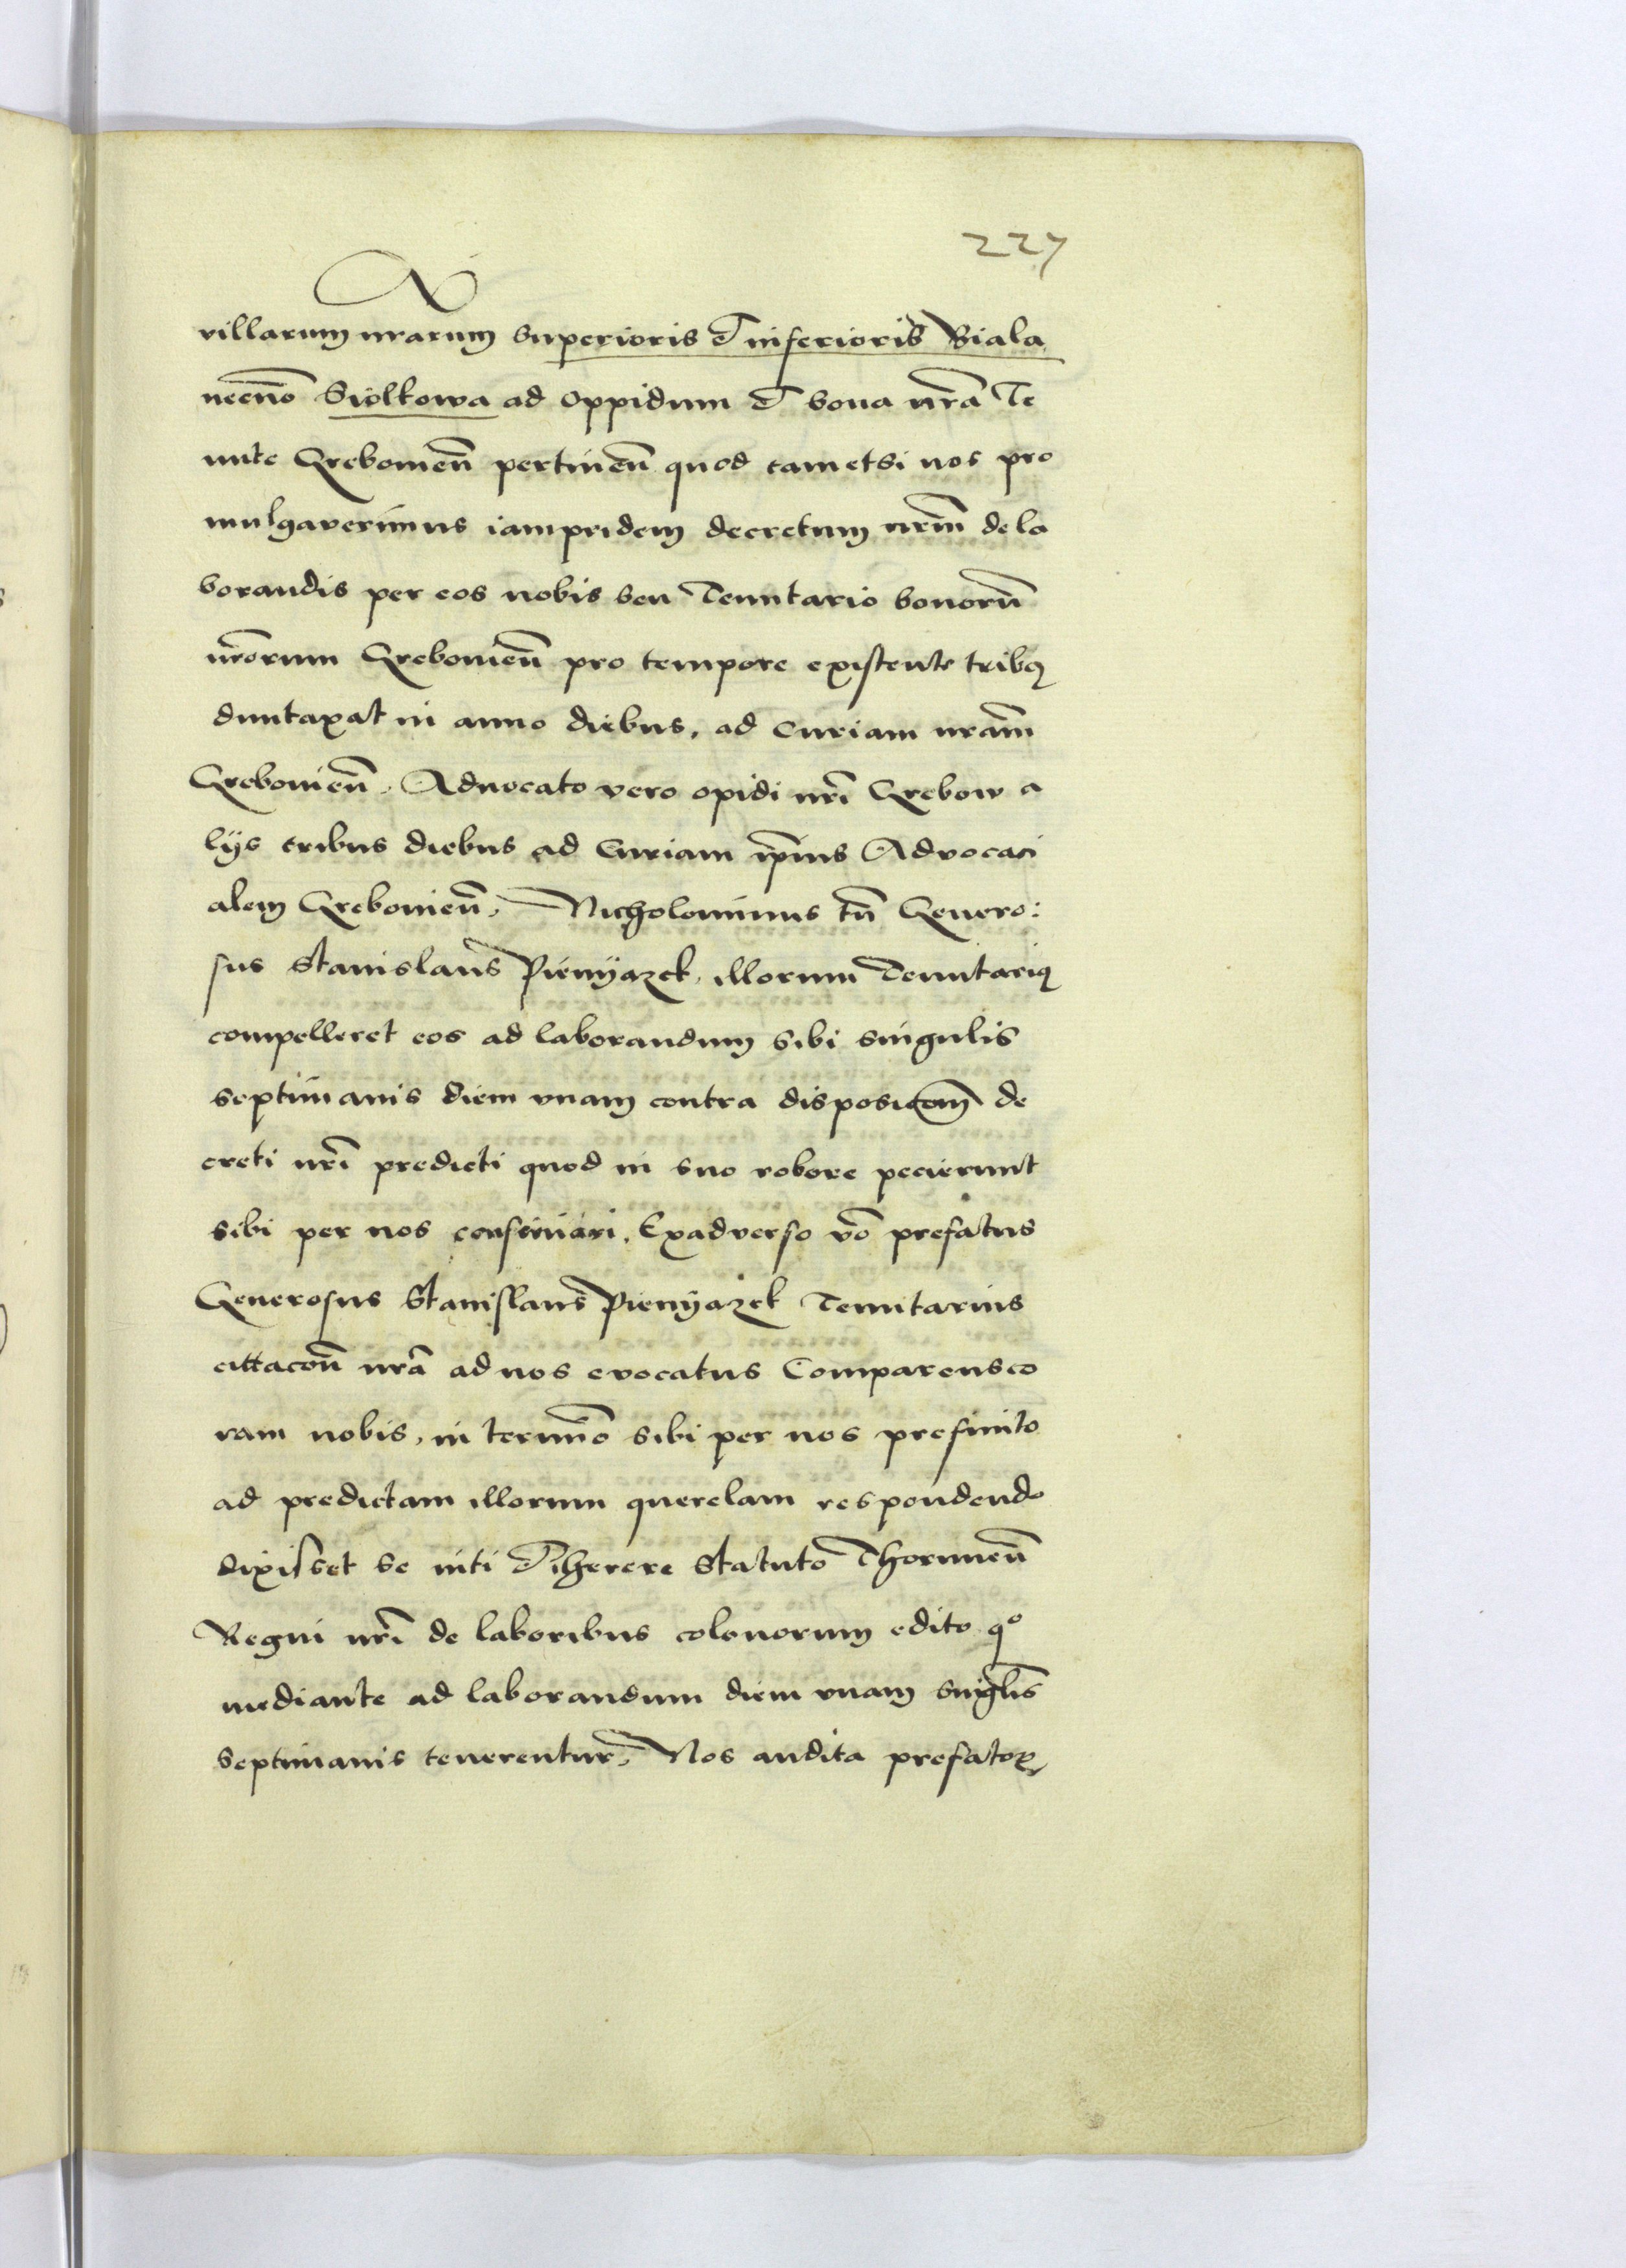 227
villarum nrarum superioris et inferioris Biala
necno Siolkowa ad oppidum et bona nra Te
nute Grebouien pertinen quod tametsi nos pro
mulgaverimus iampridem decretum nrm de la
borandis per eos nobis seu Tenutario bonoru
nrorum Grebouien pro tempore existente tribq
duntaxat in anno diebus, ad curiam nram
Grebouien. Aduocato vero opidi nri Grebow a
lijs tribus diebus ad curiam ipius Advocaci
alem Grebouien. Nicholominus tn Genero:
sus Stanislaus Pienyazek, illorum Tenutariq
compelleret eos ad laborandum sibi singulis
septimanis diem vnam contra disposicom de
creti nri predicti quod in suo robore pecierunt
sibi per nos conseruari. Exadverso vo prefatus
Generosus Stanislaus Pienyazek Tenutarius
cittacon nra ad nos evocatus Comparens co
ram nobis, in termino sibi per nos prefinito
ad predictam illorum querelam respondendo
dixisset se niti et iherere statuto Thorunien
Regni nri de laboribus colonorum edito qo
mediante ad laborandum diem vnam singlis
septimanis tenerentur. Nos audita prefatoꝝ